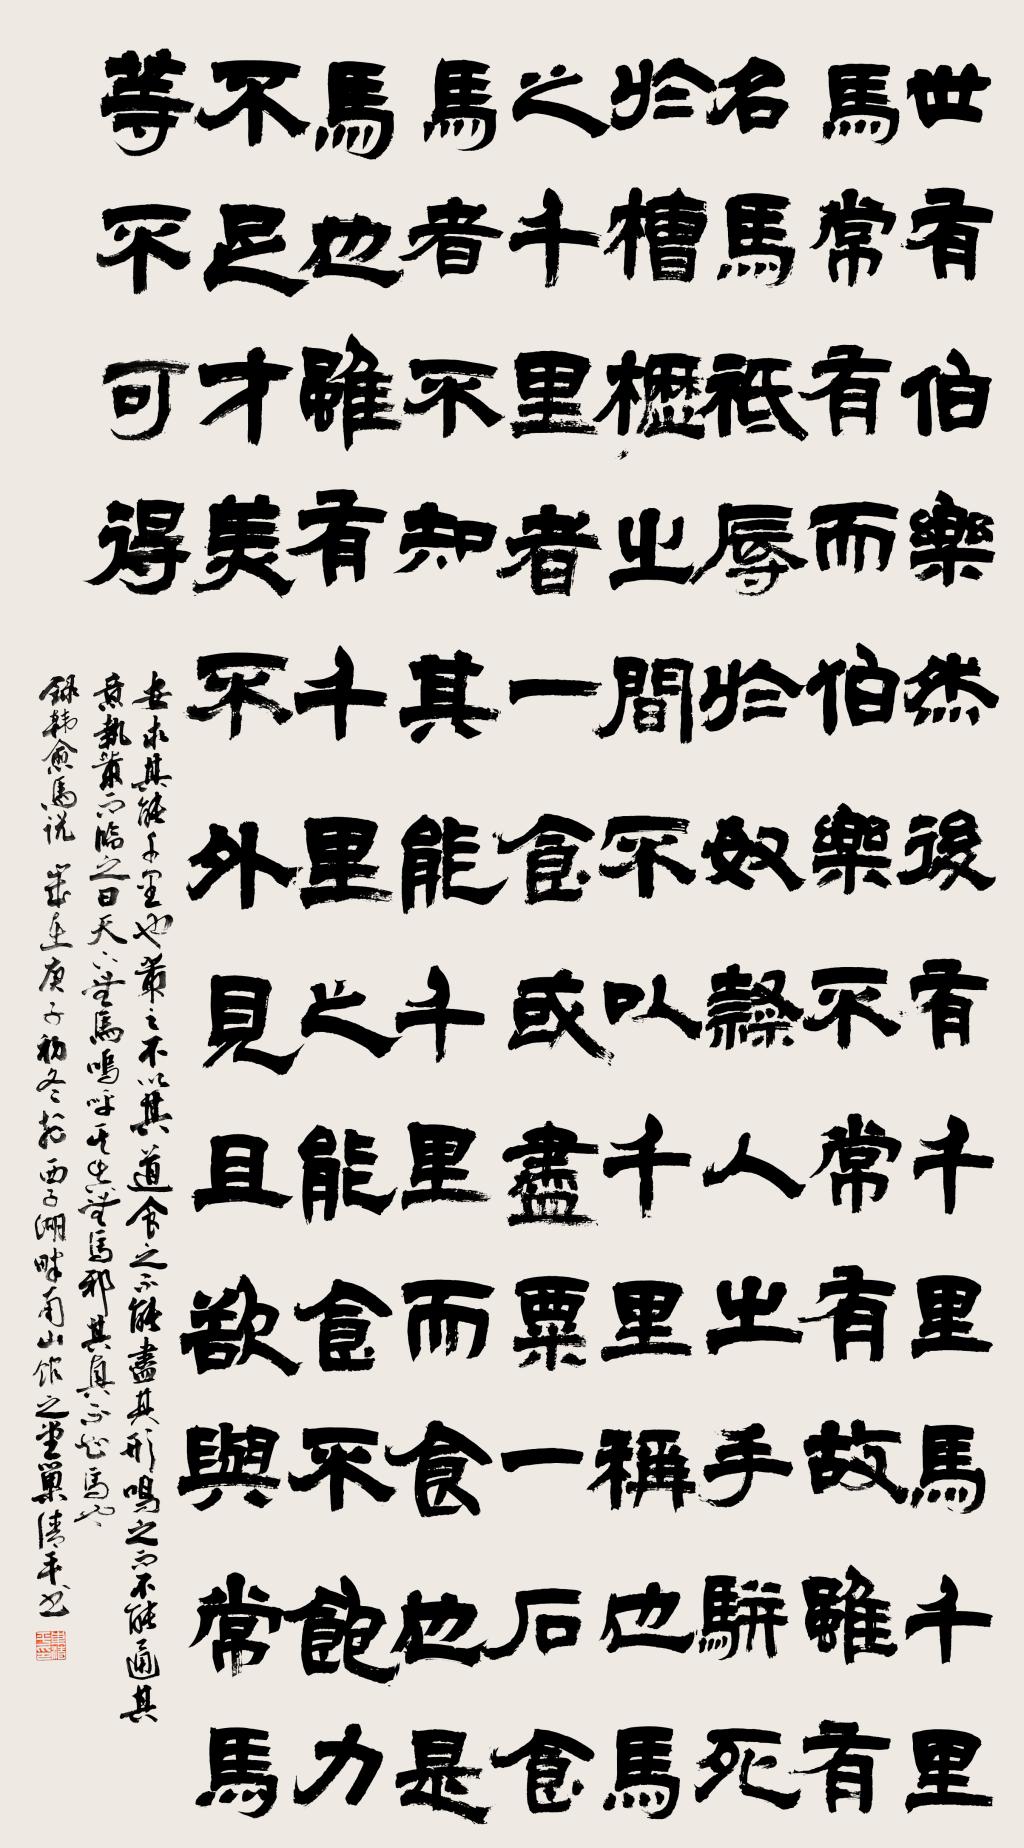 世有伯樂然後有千里馬千里
馬常有而伯樂不常有故雖有
名馬祗辱於奴隸人之手駢死
於槽櫪之間不以千里稱也馬
之千里者一食或盡粟一石食
馬者不知其能千里而食也是
馬也雖有千里之能食不飽力
不足才美不外見且欲與常馬
等不可得
安求其能千里也策之不以其道食之不能盡其形鳴之而不能通其
意執策而臨之曰天下無馬嗚呼其真無馬邪其真不知馬也
録韩愈馬说 歲在庚子初冬於西子湖畔南山館之堂巢清平书